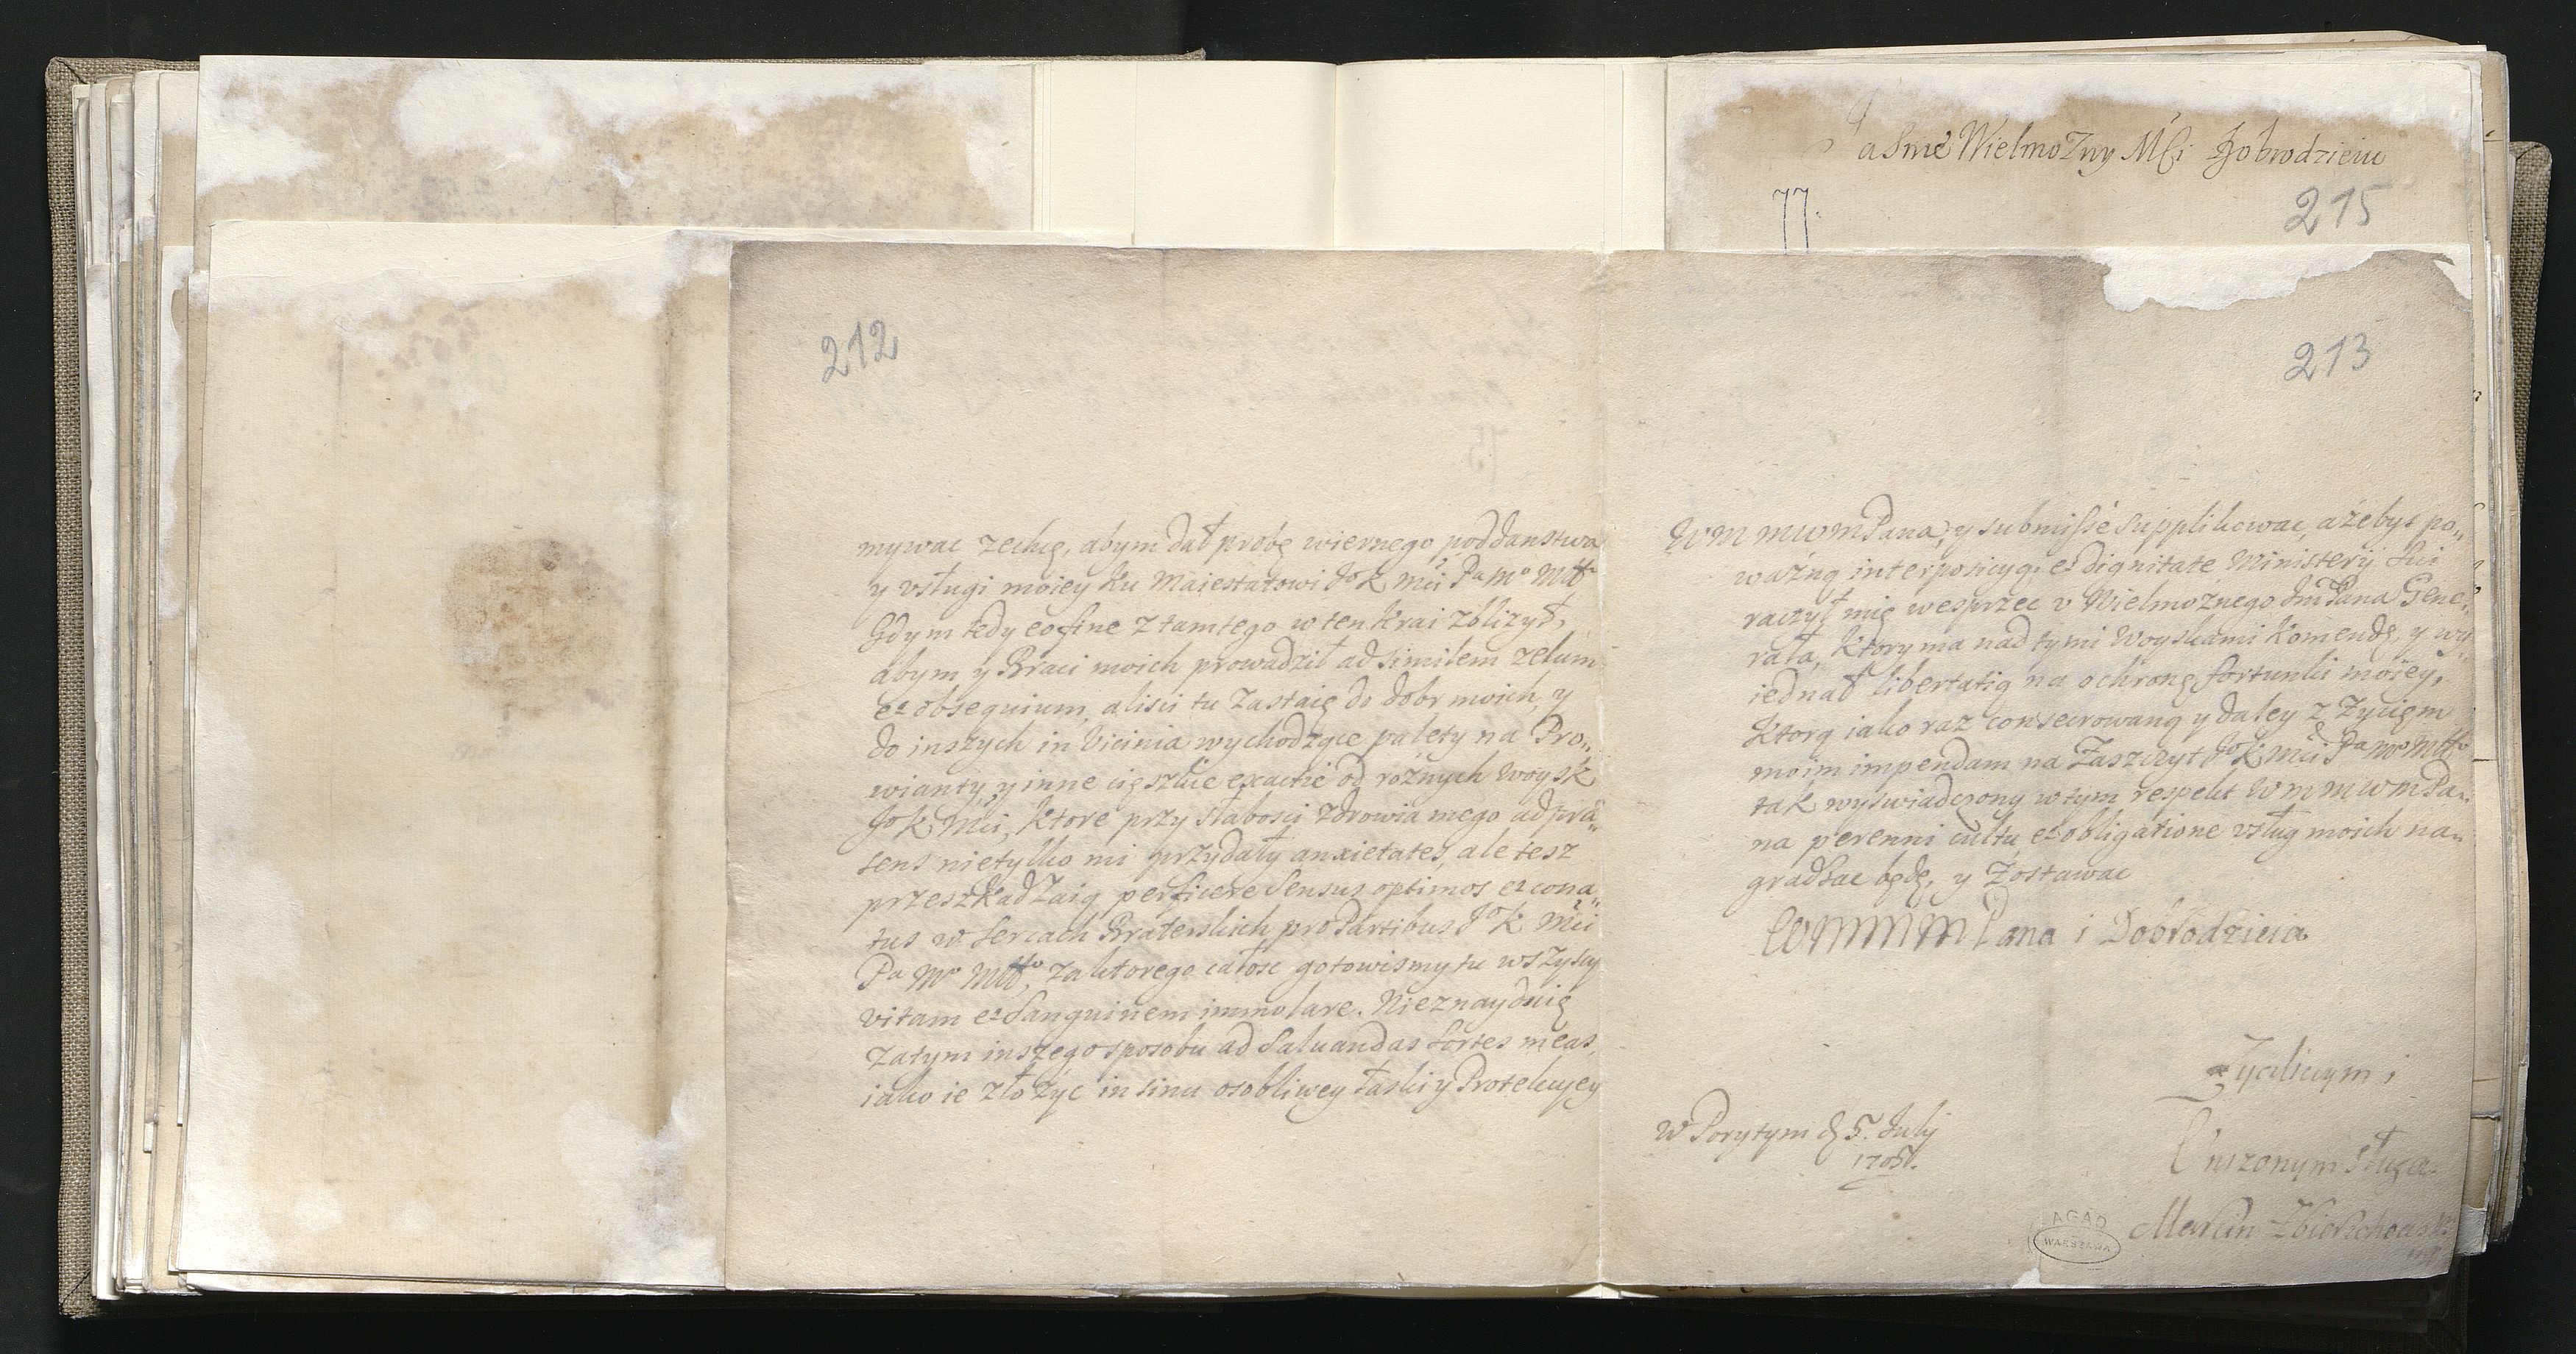 aśnie Wielmożny Mći Dobrodzieiu
77.
215
212
mywac zechcę, abym dał probę wiernego poddanstwa
y vsługi moiey ku Maiestatowi JoK Mći Pa Mo Mttło
Gdym tedy eo fine z tamtego w ten Krai zblizył,
abym y Braci moich prowadził ad similem zelum
et obsequium, alisci tu zastaię do dobr moich, y
do inszych in vicinia wychodzące palety na Pro„
wianty, y inne cięszkie exactie od rożnych Woysk
JoK Mći, ktore przy słabosci zdrowia mego ad præ„
sens nietylko mi przydały anxietates, ale tesz
przeszkadzaią perficere Sensus optimos et cona„
tus w sercach Braterskich pro Partibus JoK Mći
Pa Mo Mttło, za ktorego całosc gotowismy tu wszyscy
vitam et Sanguinem immolare. Nieznayduię
zatym inszego sposobu ad Saluandas sortes meas,
iako ie złożyc in sinu osobliwey łaski y Protekcyey
213
WM MWM Pana, y submisse supplikowac, ażebys po„
ważną interposicyą et dignitate Ministerij Sui
raczył mię wesprzec v Wielmożnego Jm Pana Gene„
rała, ktory ma nad tymi Woyskami Komendę, y wy„
iednał libertatią na ochronę fortunki moiey,
ktorą iako raz consecrowaną y daley z życięm
moim impendam na Zaszczyt JoK Mći Pa Mo Mttło
tak wyswiadczony w tym respekt WM MWM Pa„
na perenni cultu, et obligatione vsług moich na„
gradzac będę, y zostawac
WMMMM Pana i Dobrodzieia
Zyczliwym i
Unizonym sługą
w Porytym d 5. July
1705.
Marcin
AGAD
WARSZAWA